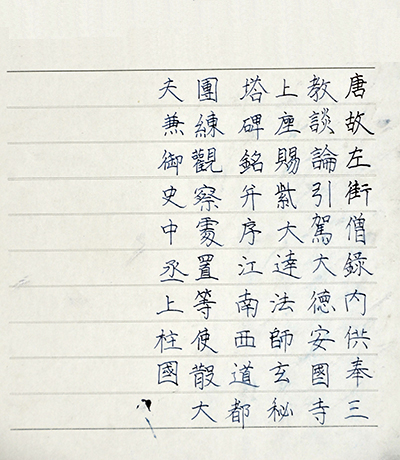 唐故左街僧録内供奉三
教談論引駕大德安國寺
上座賜紫大達法師玄秘
塔碑銘并序江南西道都
團練觀察處置等使散大
夫兼御史中丞上柱國